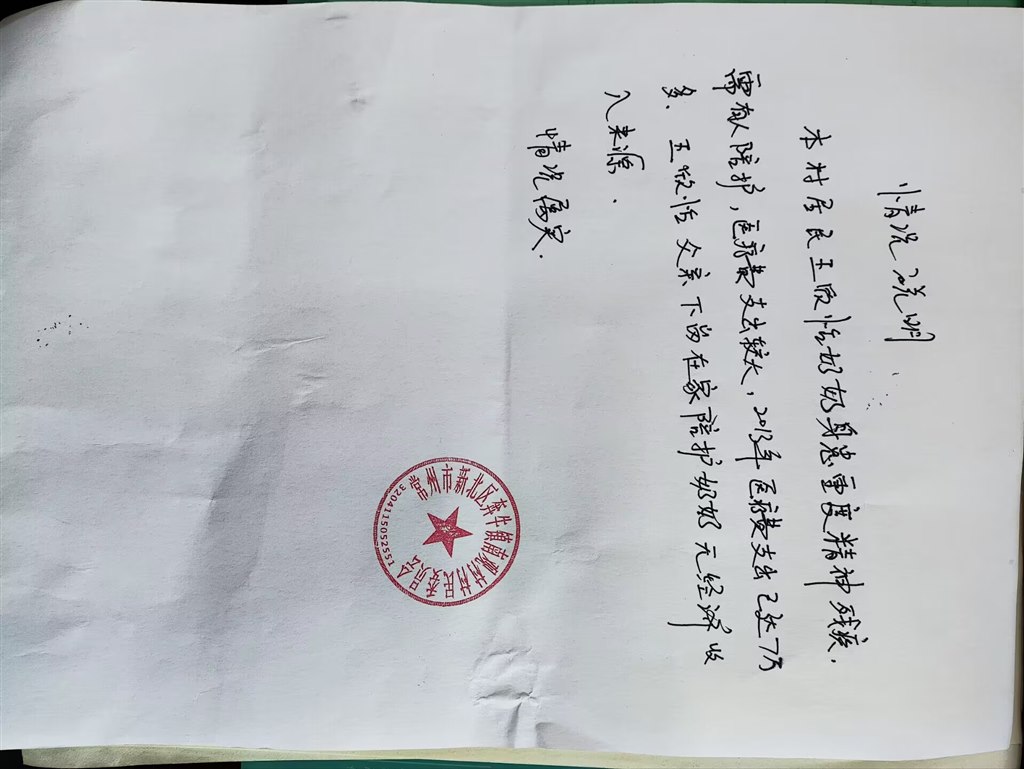 情况说明
本村居民王欣恬奶奶身患重度精神残疾.
需有人陪护，医疗费支出较大，2013年医疗费支出已达7万
多. 王欣恬父亲下岗在家陪护奶奶无经济收
入来源.
情况属实.
常州市新北区奔牛镇南观村村民委员会
3204115052551